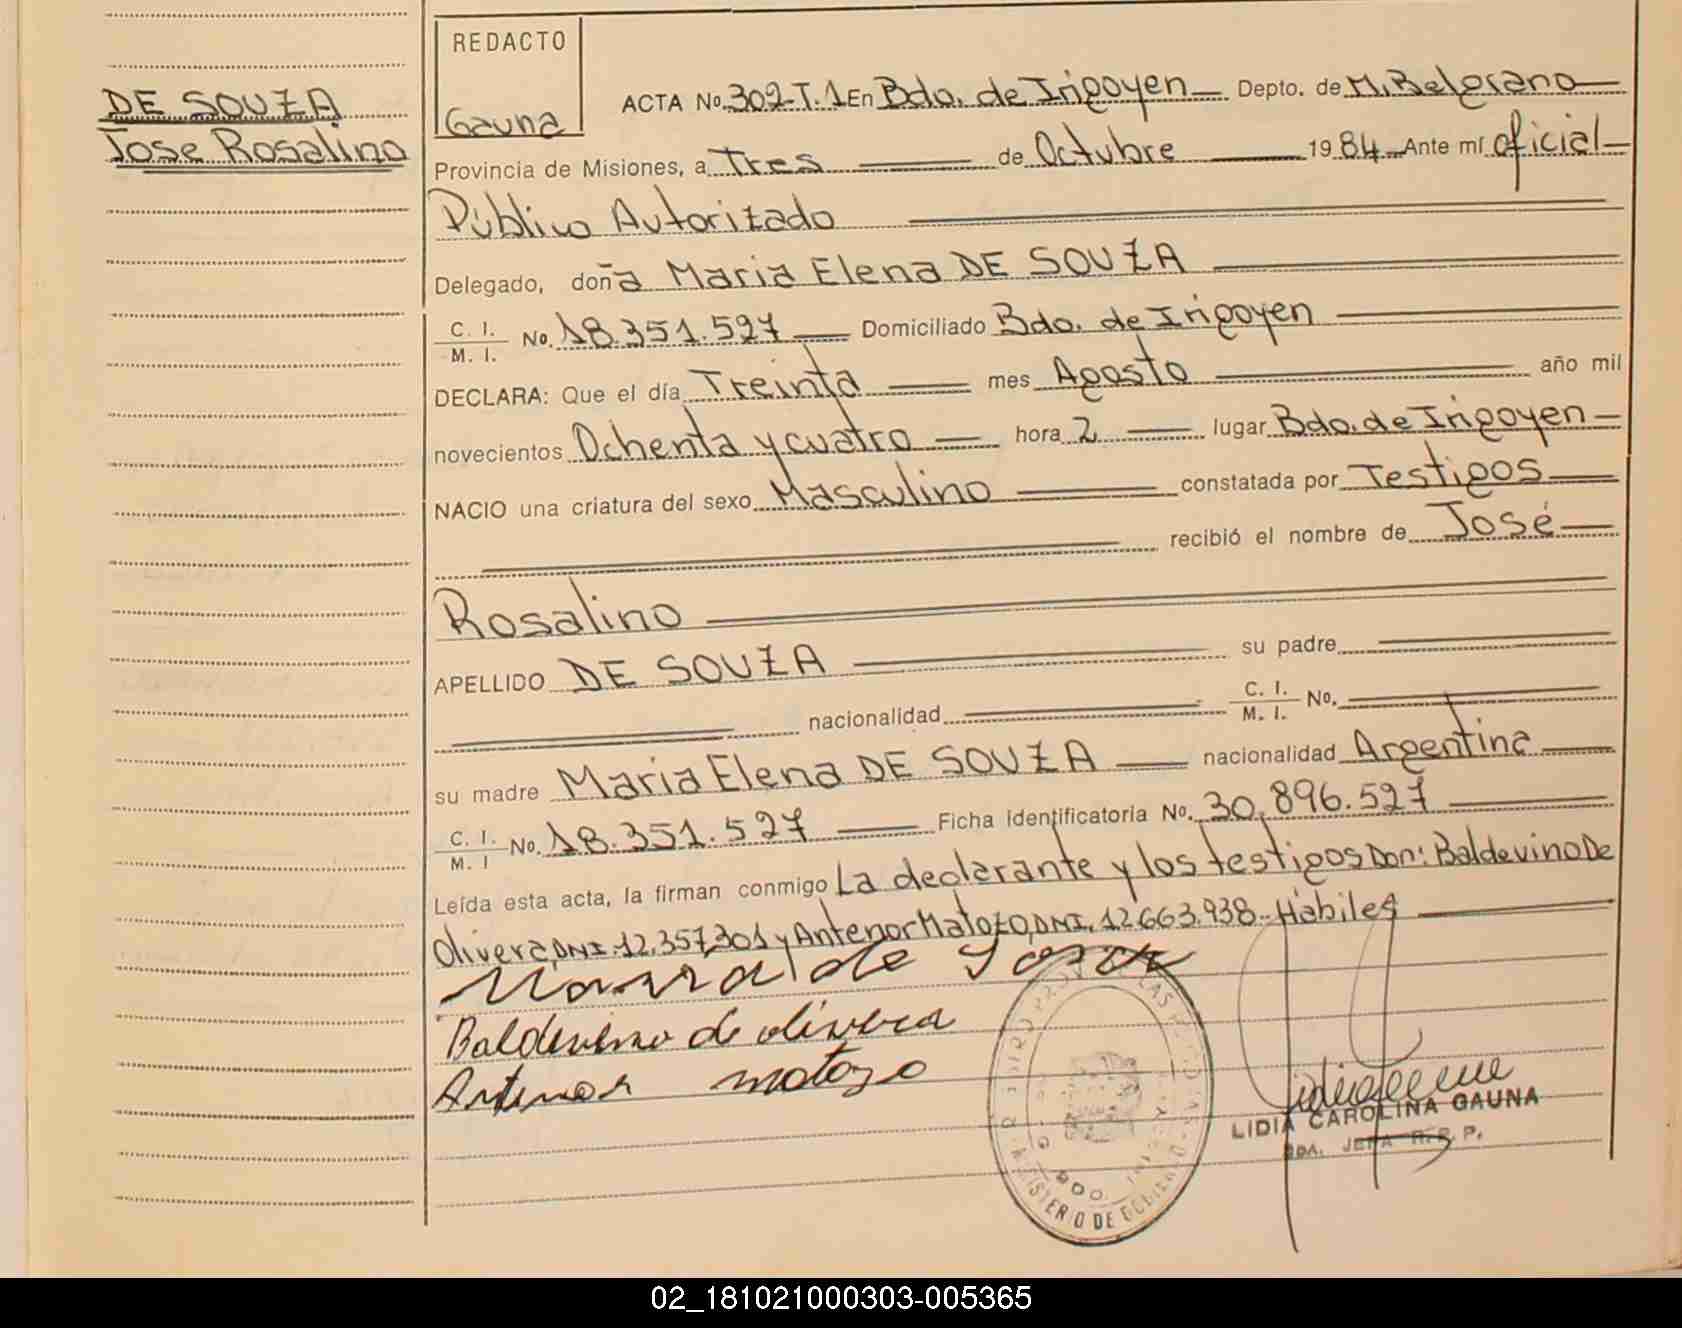 DE SOUZA
Jose Rosalino
REDACTO
Gauna
ACTA No. 302-T.1 En Bdo. de Irigoyen Depto. de M. Belgrano
Provincia de Misiones, a Tres de Octubre 1984 Ante mí oficial
Público Autorizado
Delegado, doña Maria Elena DE SOUZA
C. I.
M. I. No. 18.351.527 Domiciliado Bdo. de Irigoyen
DECLARA: Que el día Treinta mes Agosto año mil
novecientos Ochenta y cuatro hora 2 lugar Bdo. de Irigoyen
NACIO una criatura del sexo Masculino constatada por Testigos
recibió el nombre de José
Rosalino
APELLIDO DE SOUZA su padre
nacionalidad C. I. M. I. No.
su madre Maria Elena DE SOUZA nacionalidad Argentina
C. I.
M. I No. 18.351.527 Ficha identificatoria No. 30.896.527
Leída esta acta, la firman conmigo La declarante y los testigos Don: Baldevino De
Olivera, DNI. 12.357.301 y Antenor Matozo, DNI. 12.663.938.- Hábiles
Maria de Soza
Baldevino de olivera
Antenor motozo
LIDIA CAROLINA GAUNA
MINISTERIO DE GOBIERNO
02_181021000303-005365